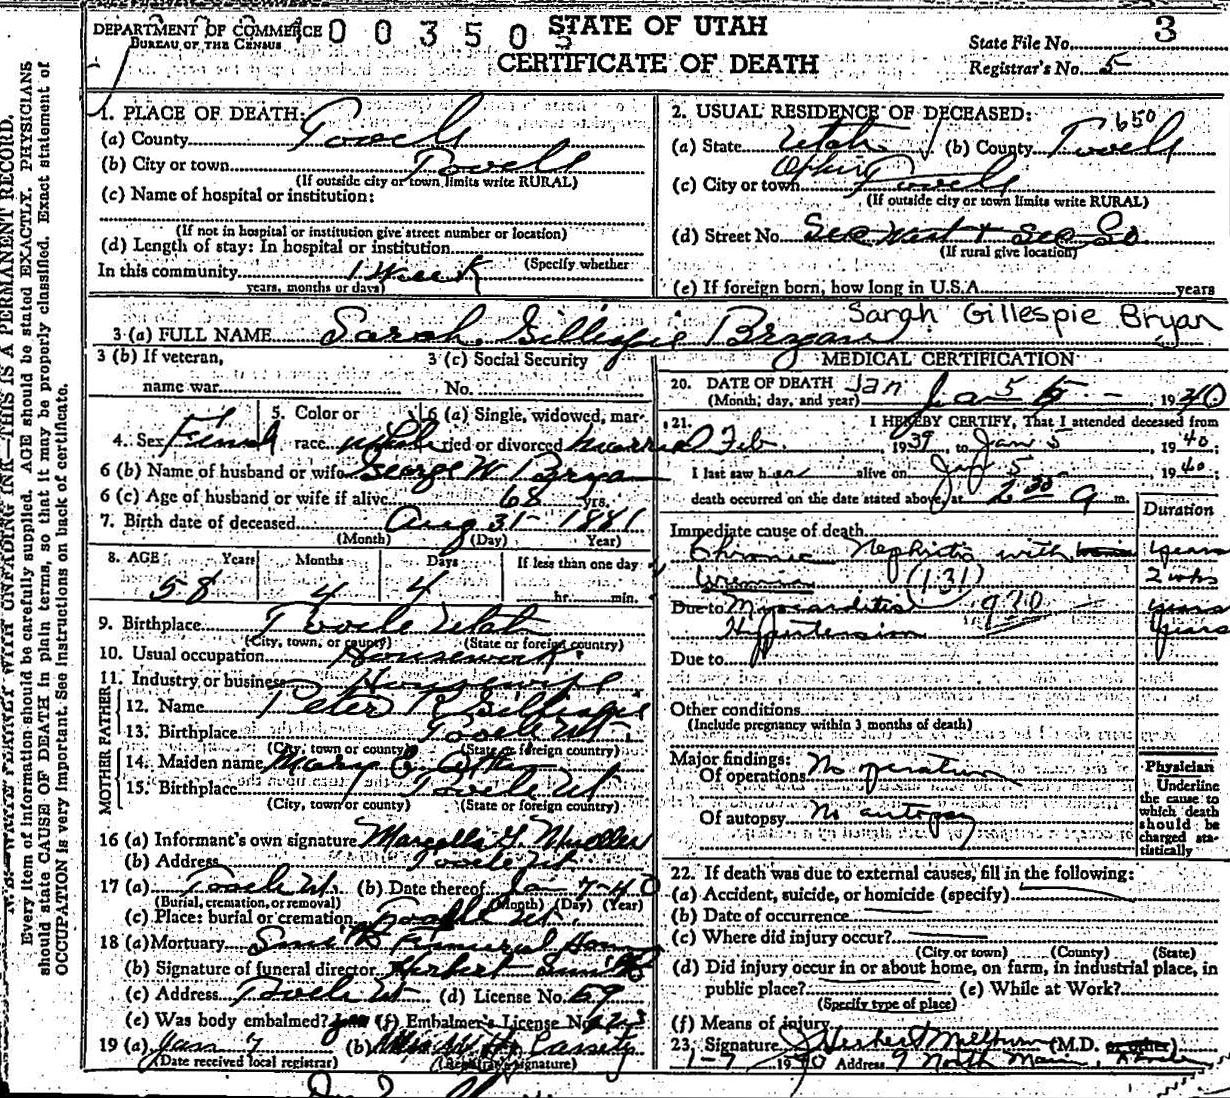 DEPARTMENT OF COMMERCE
BUREAU OF THE CENSUS
0 0 3 5 0
STATE OF UTAH
CERTIFICATE OF DEATH
State File No. 3
Registrar's No. 5
1. PLACE OF DEATH:
(a) County Tooele
(b) City or town Tooele
(If outside city or town limits write RURAL)
(c) Name of hospital or institution:
(If not in hospital or institution give street number or location)
(d) Length of stay: In hospital or institution
(Specify whether
In this community 1 Week
years, months or days)
2. USUAL RESIDENCE OF DECEASED:
650
(a) State Utah (b) County Tooele
Ophir
(c) City or town Tooele
(If outside city or town limits write RURAL)
(d) Street No. Sec West + Sec So
(If rural give location)
(e) If foreign born, how long in U.S.A. years
3 (a) FULL NAME Sarah Gillispie Bryan
Sarah Gillespie Bryan
3 (b) If veteran,
name war
3 (c) Social Security
No.
4. Sex
5. Color or
race white
6 (a) Single, widowed, married or divorced Married
6 (b) Name of husband or wife George W Bryan
6 (c) Age of husband or wife if alive 68 yrs.
7. Birth date of deceased Aug 31 1881
(Month) (Day) Year)
8. AGE Years Months Days If less than one day
58 4 4 hr. min.
9. Birthplace Tooele Utah
(City, town, or county) (State or foreign country)
10. Usual occupation Housework
11. Industry or business Housewife
FATHER
12. Name Peter R Gillispie
13. Birthplace Tooele Ut.
(City, town or county) (State or foreign country)
MOTHER
14. Maiden name Mary E.
15. Birthplace Tooele Ut
(City, town or county) (State or foreign country)
16 (a) Informant's own signature Marcella G. Mueller
(b) Address Tooele Ut
17 (a) Tooele Ut. (b) Date thereof Ja 7-40
(Burial, cremation, or removal) (Month) (Day) (Year)
(c) Place: burial or cremation Tooele Ut.
18 (a) Mortuary Smith Funeral Home
(b) Signature of funeral director Herbert Smith
(c) Address Tooele Ut (d) License No. 59
(e) Was body embalmed? yes (f) Embalmer's License No.
19 (a) Jan 7 (b) Mrs W
(Date received local registrar) (Registrar's signature)
MEDICAL CERTIFICATION
20. DATE OF DEATH Jan 5 Jan 5 1940
(Month, day, and year)
21. I HEREBY CERTIFY, That I attended deceased from
Feb. 1939, to Jan 5, 1940.
I last saw her alive on Jan 5 1940.
death occurred on the date stated above, at 2 30 a m.
Duration
Immediate cause of death
Chronic Nephritis with years
Uremia (131) 2 wks
Due to Myocarditis 930 years
Hypertension years
Due to
Other conditions
(Include pregnancy within 3 months of death)
Major findings:
Of operations No operation
Of autopsy No autopsy
Physician
Underline
the cause to
which death
should be
charged sta-
tistically
22. If death was due to external causes, fill in the following:
(a) Accident, suicide, or homicide (specify)
(b) Date of occurrence
(c) Where did injury occur?
(City or town) (County) (State)
(d) Did injury occur in or about home, on farm, in industrial place, in
public place? (e) While at Work?
(Specify type of place)
(f) Means of injury
23. Signature J Herbert Milburn (M.D. or other)
1-7 1940 Address 9 North Main, Tooele
N.B.—WRITE PLAINLY WITH UNFADING INK—THIS IS A PERMANENT RECORD.
Every item of information should be carefully supplied. AGE should be stated EXACTLY. PHYSICIANS
should state CAUSE OF DEATH in plain terms, so that it may be properly classified. Exact statement of
OCCUPATION is very important. See instructions on back of certificate.